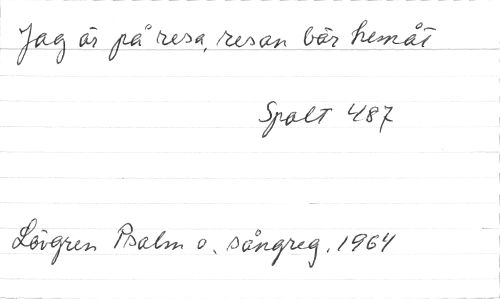 Jag är på resa, resan bär hemåt
Spalt 487
Lövgren Psalm o. sångreg. 1964